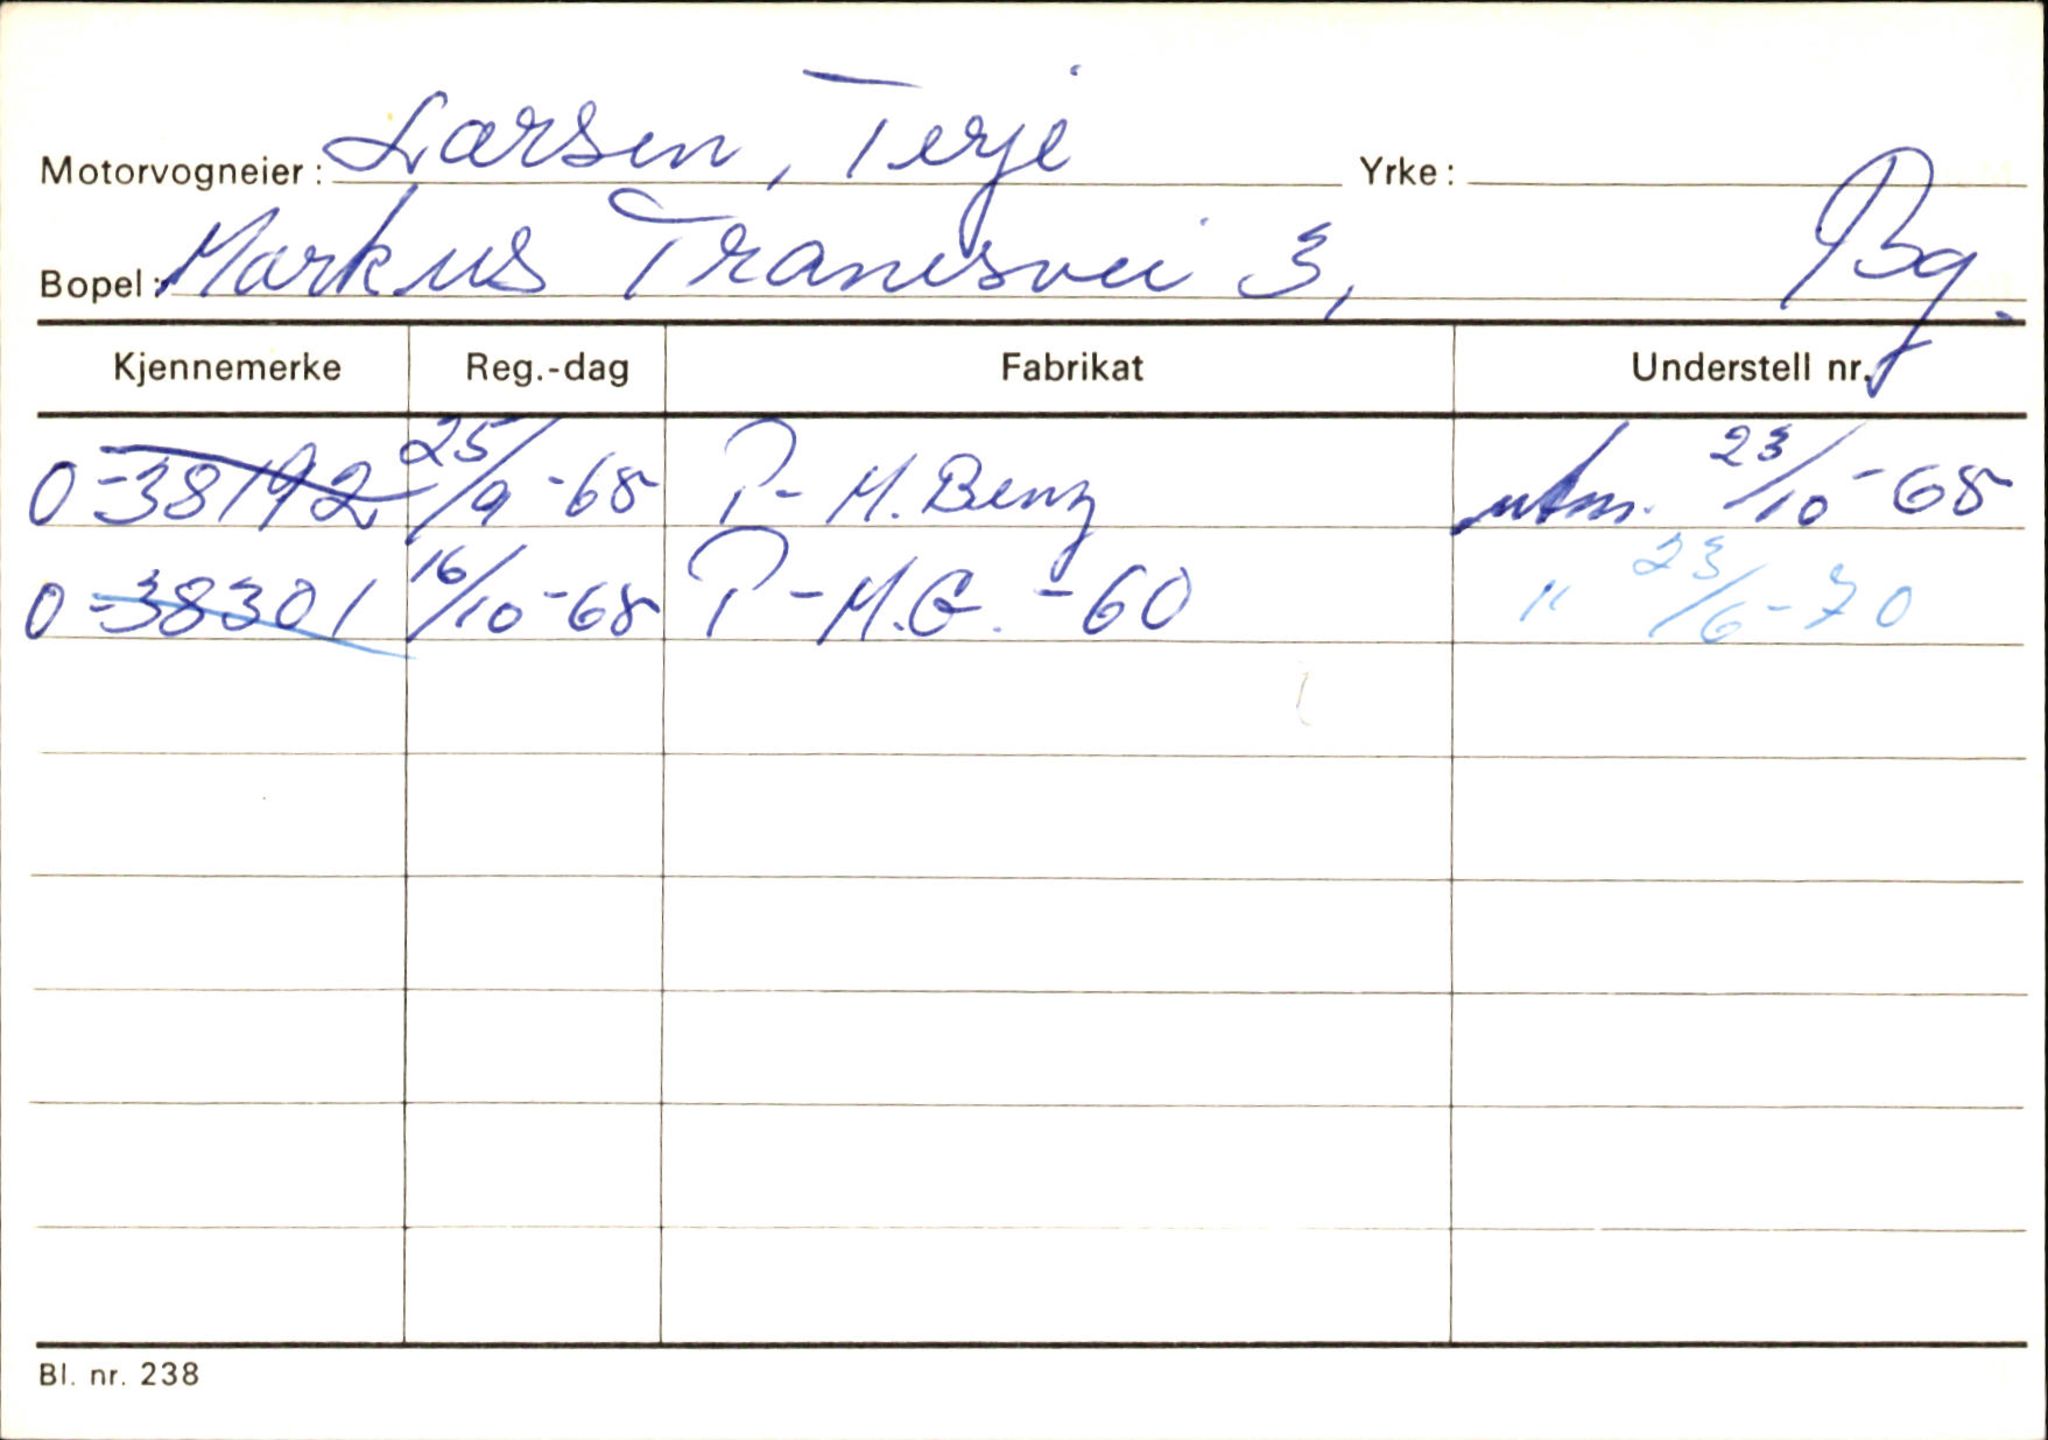 Motorvogneier: Larsen, Terje Yrke:
Bopel: Markus Tranesvei 3, Bg.
Kjennemerke Reg.-dag Fabrikat Understell nr.
O-38192 25/9-68 P- M.Benz utm. 23/10-68
O-38301 16/10-68 P-M.G. -60 " 23/6-70
Bl. nr. 238